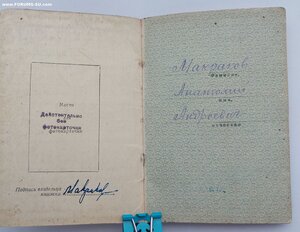 www.FORUMS-SU.com
Место
Действительно
без
фотокарточки
фотокарточки
Подпись владельца
книжки
Макратов
фамилия
Анатолий
имя
Андреевич
отчество